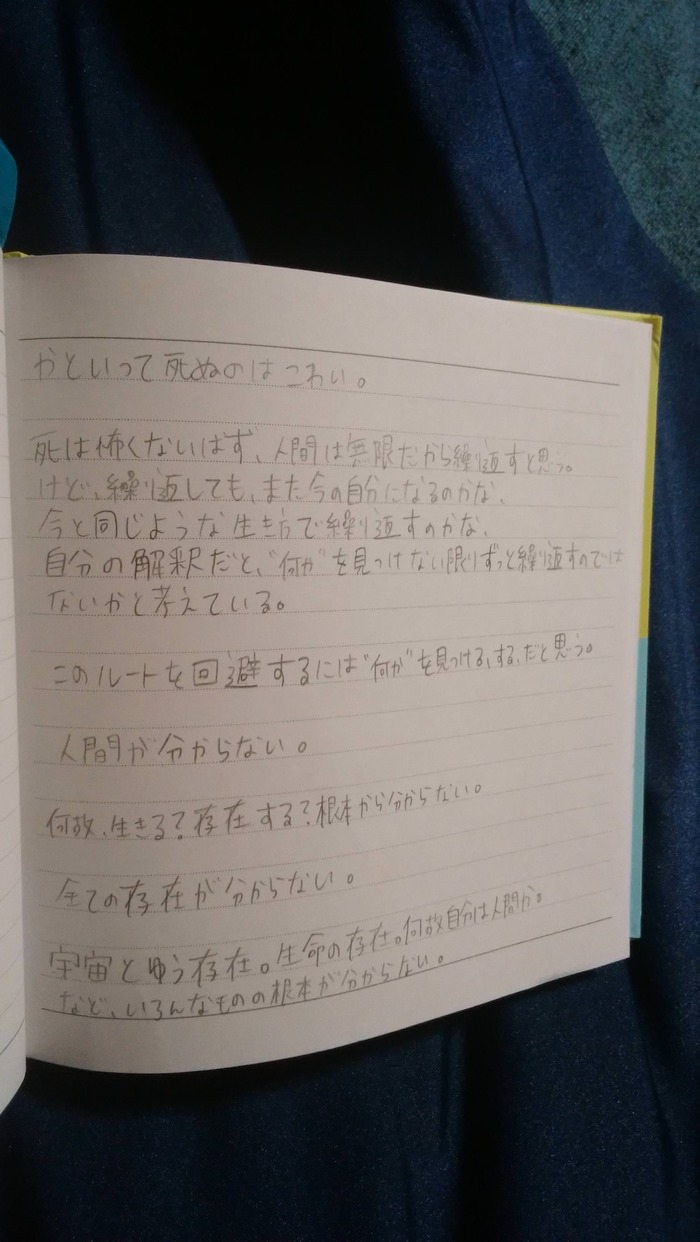 かといって死ぬのはこわい。
死は怖くないはず、人間は無限だから繰り返すと思う。
けど、繰り返しても、また今の自分になるのかな、
今と同じような生き方で繰り返すのかな、
自分の解釈だと、"何か"を見つけない限りずっと繰り返すのでは
ないかと考えている。
このルートを回避するには"何か"を見つける、する、だと思う。
人間が分からない。
何故、生きる?存在する?根本から分からない。
全ての存在が分からない。
宇宙とゆう存在。生命の存在。何故自分は人間か。
など、いろんなものの根本が分からない。